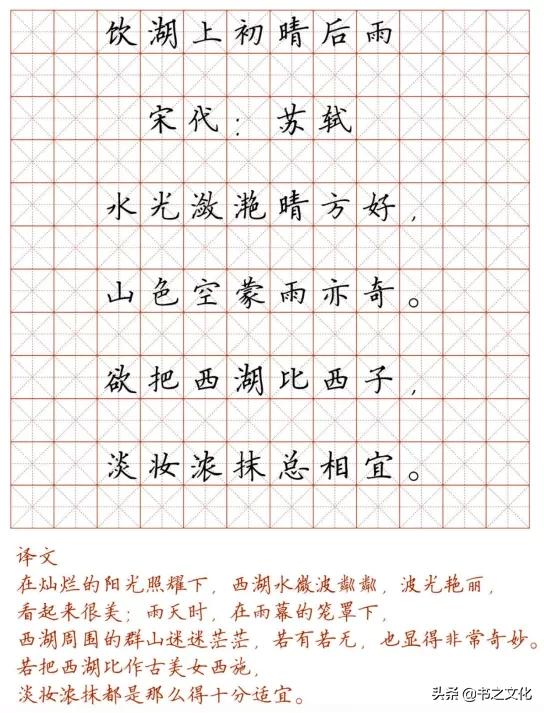 饮湖上初晴后雨
宋代：苏轼
水光潋滟晴方好，
山色空蒙雨亦奇。
欲把西湖比西子，
淡妆浓抹总相宜。
译文
在灿烂的阳光照耀下，西湖水微波粼粼，波光艳丽，
看起来很美；雨天时，在雨幕的笼罩下，
西湖周围的群山迷迷茫茫，若有若无，也显得非常奇妙。
若把西湖比作古美女西施，
淡妆浓抹都是那么得十分适宜。
头条 @书之文化